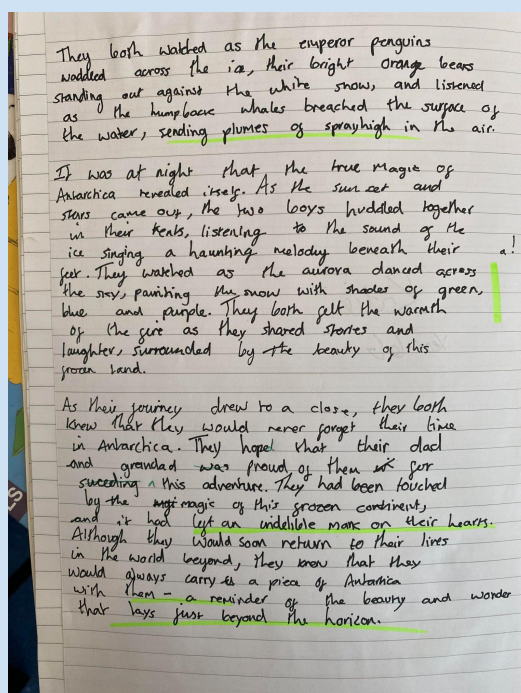 They both watched as the emperor penguins
waddled across the ice, their bright orange bears
standing out against the white snow, and listened
as the humpback whales breached the surface of
the water, sending plumes of spray high in the air.
It was at night that the true magic of
Antarctica revealed itself. As the sun set and
stars came out, the two boys huddled together
in their tents, listening to the sound of the
ice singing a haunting melody beneath their a!
feet. They watched as the aurora danced across
the sky, painting the snow with shades of green,
blue and purple. They both felt the warmth
of the fire as they shared stories and
laughter, surrounded by the beauty of this
frozen land.
As their journey drew to a close, they both
knew that they would never forget their time
in Antarctica. They hope that their dad
and grandad was proud of them for
suceeding ^ this adventure. They had been touched
by the magic of this frozen continent,
and it had left an indelible mark on their hearts.
Although they would soon return to their lives
in the world beyond, they knew that they
would always carry a piece of Antarctica
with them - a reminder of the beauty and wonder
that lays just beyond the horizon.